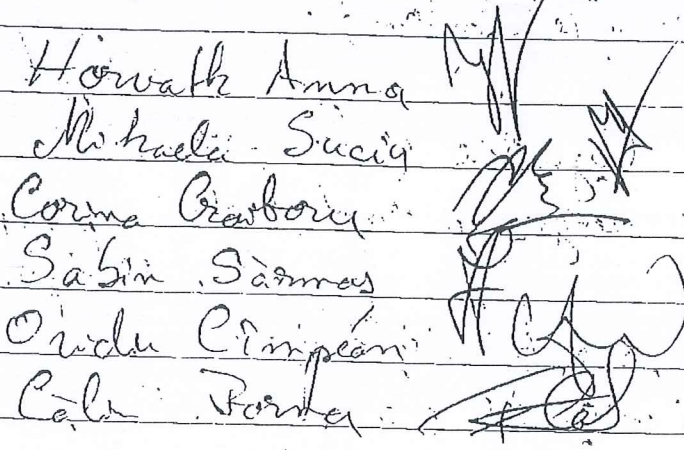 Horvath Anna
Mihaela Suciu
Corina
Sabin Sărmaș
Ovidiu Cîmpean
Călin